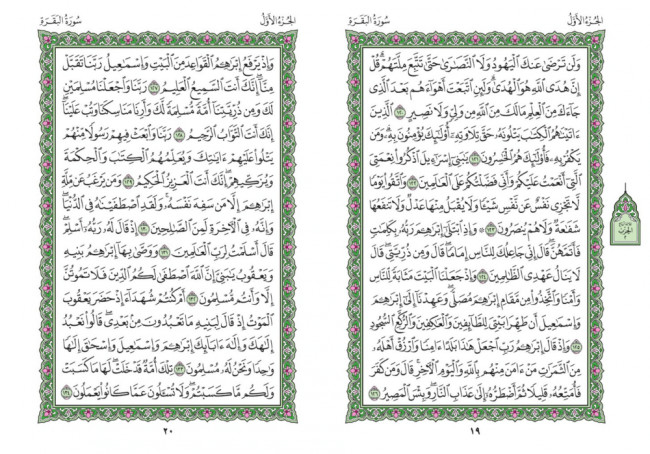 الجزء الأول
سورة البقرة
وَلَن تَرْضَىٰ عَنكَ ٱلْيَهُودُ وَلَا ٱلنَّصَٰرَىٰ حَتَّىٰ تَتَّبِعَ مِلَّتَهُمْ ۗ قُلْ
إِنَّ هُدَى ٱللَّهِ هُوَ ٱلْهُدَىٰ ۗ وَلَئِنِ ٱتَّبَعْتَ أَهْوَآءَهُم بَعْدَ ٱلَّذِى
جَآءَكَ مِنَ ٱلْعِلْمِ ۙ مَا لَكَ مِنَ ٱللَّهِ مِن وَلِىٍّ وَلَا نَصِيرٍ ١٢٠ ٱلَّذِينَ
ءَاتَيْنَٰهُمُ ٱلْكِتَٰبَ يَتْلُونَهُۥ حَقَّ تِلَاوَتِهِۦٓ أُو۟لَٰٓئِكَ يُؤْمِنُونَ بِهِۦ ۗ وَمَن
يَكْفُرْ بِهِۦ فَأُو۟لَٰٓئِكَ هُمُ ٱلْخَٰسِرُونَ ١٢١ يَٰبَنِىٓ إِسْرَٰٓءِيلَ ٱذْكُرُوا۟ نِعْمَتِىَ
ٱلَّتِىٓ أَنْعَمْتُ عَلَيْكُمْ وَأَنِّى فَضَّلْتُكُمْ عَلَى ٱلْعَٰلَمِينَ ١٢٢ وَٱتَّقُوا۟ يَوْمًا
لَّا تَجْزِى نَفْسٌ عَن نَّفْسٍ شَيْـًٔا وَلَا يُقْبَلُ مِنْهَا عَدْلٌ وَلَا تَنفَعُهَا
شَفَٰعَةٌ وَلَا هُمْ يُنصَرُونَ ١٢٣ ۞ وَإِذِ ٱبْتَلَىٰٓ إِبْرَٰهِۦمَ رَبُّهُۥ بِكَلِمَٰتٍ
فَأَتَمَّهُنَّ ۖ قَالَ إِنِّى جَاعِلُكَ لِلنَّاسِ إِمَامًا ۖ قَالَ وَمِن ذُرِّيَّتِى ۖ قَالَ
لَا يَنَالُ عَهْدِى ٱلظَّٰلِمِينَ ١٢٤ وَإِذْ جَعَلْنَا ٱلْبَيْتَ مَثَابَةً لِّلنَّاسِ
وَأَمْنًا وَٱتَّخِذُوا۟ مِن مَّقَامِ إِبْرَٰهِۦمَ مُصَلًّى ۖ وَعَهِدْنَآ إِلَىٰٓ إِبْرَٰهِۦمَ
وَإِسْمَٰعِيلَ أَن طَهِّرَا بَيْتِىَ لِلطَّآئِفِينَ وَٱلْعَٰكِفِينَ وَٱلرُّكَّعِ ٱلسُّجُودِ
١٢٥ وَإِذْ قَالَ إِبْرَٰهِۦمُ رَبِّ ٱجْعَلْ هَٰذَا بَلَدًا ءَامِنًا وَٱرْزُقْ أَهْلَهُۥ
مِنَ ٱلثَّمَرَٰتِ مَنْ ءَامَنَ مِنْهُم بِٱللَّهِ وَٱلْيَوْمِ ٱلْءَاخِرِ ۖ قَالَ وَمَن كَفَرَ
فَأُمَتِّعُهُۥ قَلِيلًا ثُمَّ أَضْطَرُّهُۥٓ إِلَىٰ عَذَابِ ٱلنَّارِ ۖ وَبِئْسَ ٱلْمَصِيرُ ١٢٦
١٩
الجزء الأول
سورة البقرة
وَإِذْ يَرْفَعُ إِبْرَٰهِۦمُ ٱلْقَوَاعِدَ مِنَ ٱلْبَيْتِ وَإِسْمَٰعِيلُ رَبَّنَا تَقَبَّلْ
مِنَّآ ۖ إِنَّكَ أَنتَ ٱلسَّمِيعُ ٱلْعَلِيمُ ١٢٧ رَبَّنَا وَٱجْعَلْنَا مُسْلِمَيْنِ
لَكَ وَمِن ذُرِّيَّتِنَآ أُمَّةً مُّسْلِمَةً لَّكَ وَأَرِنَا مَنَاسِكَنَا وَتُبْ عَلَيْنَآ ۖ
إِنَّكَ أَنتَ ٱلتَّوَّابُ ٱلرَّحِيمُ ١٢٨ رَبَّنَا وَٱبْعَثْ فِيهِمْ رَسُولًا مِّنْهُمْ
يَتْلُوا۟ عَلَيْهِمْ ءَايَٰتِكَ وَيُعَلِّمُهُمُ ٱلْكِتَٰبَ وَٱلْحِكْمَةَ
وَيُزَكِّيهِمْ ۚ إِنَّكَ أَنتَ ٱلْعَزِيزُ ٱلْحَكِيمُ ١٢٩ وَمَن يَرْغَبُ عَن مِّلَّةِ
إِبْرَٰهِۦمَ إِلَّا مَن سَفِهَ نَفْسَهُۥ ۚ وَلَقَدِ ٱصْطَفَيْنَٰهُ فِى ٱلدُّنْيَا ۖ
وَإِنَّهُۥ فِى ٱلْءَاخِرَةِ لَمِنَ ٱلصَّٰلِحِينَ ١٣٠ إِذْ قَالَ لَهُۥ رَبُّهُۥٓ أَسْلِمْ ۖ
قَالَ أَسْلَمْتُ لِرَبِّ ٱلْعَٰلَمِينَ ١٣١ وَوَصَّىٰ بِهَآ إِبْرَٰهِۦمُ بَنِيهِ
وَيَعْقُوبُ يَٰبَنِىَّ إِنَّ ٱللَّهَ ٱصْطَفَىٰ لَكُمُ ٱلدِّينَ فَلَا تَمُوتُنَّ
إِلَّا وَأَنتُم مُّسْلِمُونَ ١٣٢ أَمْ كُنتُمْ شُهَدَآءَ إِذْ حَضَرَ يَعْقُوبَ
ٱلْمَوْتُ إِذْ قَالَ لِبَنِيهِ مَا تَعْبُدُونَ مِنۢ بَعْدِى قَالُوا۟ نَعْبُدُ
إِلَٰهَكَ وَإِلَٰهَ ءَابَآئِكَ إِبْرَٰهِۦمَ وَإِسْمَٰعِيلَ وَإِسْحَٰقَ إِلَٰهًا
وَٰحِدًا وَنَحْنُ لَهُۥ مُسْلِمُونَ ١٣٣ تِلْكَ أُمَّةٌ قَدْ خَلَتْ ۖ لَهَا مَا كَسَبَتْ
وَلَكُم مَّا كَسَبْتُمْ ۖ وَلَا تُسْـَٔلُونَ عَمَّا كَانُوا۟ يَعْمَلُونَ ١٣٤
٢٠